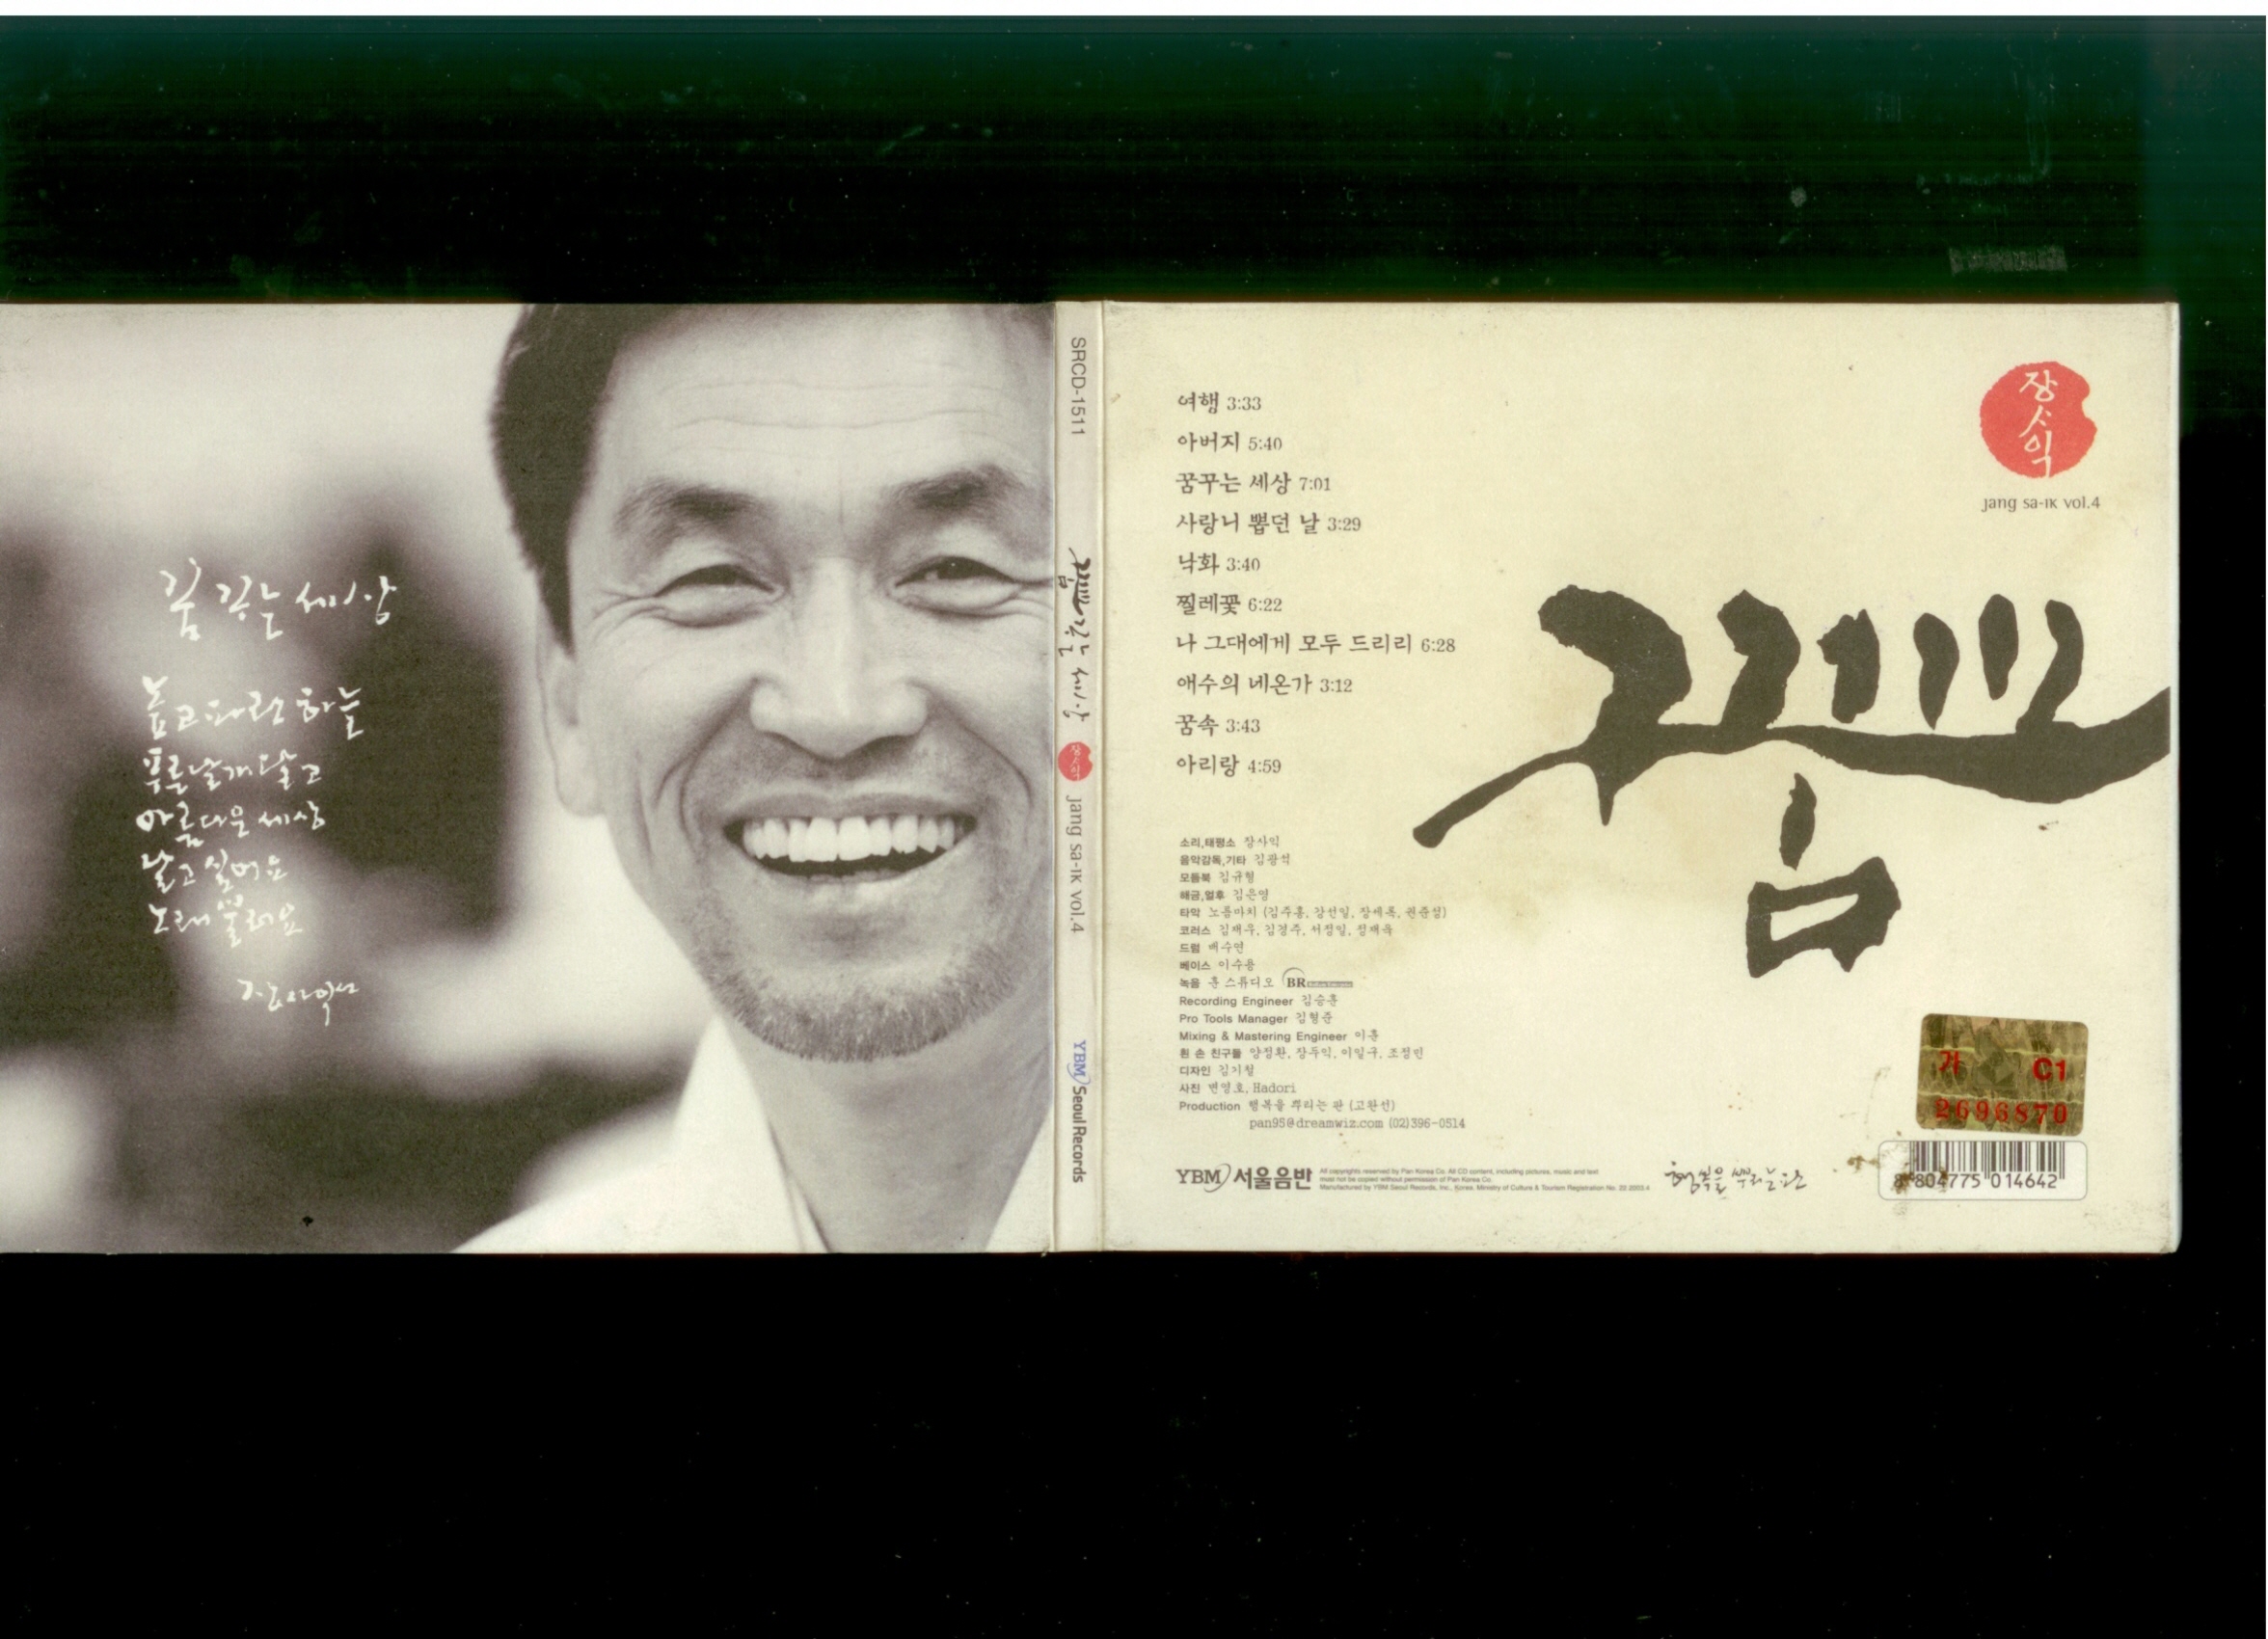 꿈꾸는 세상
높고 파란 하늘
푸른 날개 달고
아름다운 세상
날고 싶어요
노래 불러요
장사익
SRCD-1511
꿈꾸는 세상
장사익
Jang Sa-Ik vol.4
YBM Seoul Records
여행 3:33
아버지 5:40
꿈꾸는 세상 7:01
사랑니 뽑던 날 3:29
낙화 3:40
찔레꽃 6:22
나 그대에게 모두 드리리 6:28
애수의 네온가 3:12
꿈속 3:43
아리랑 4:59
소리,태평소 장사익
음악감독,기타 김광석
모듬북 김규형
해금,얼후 김은영
타악 노름마치 (김주홍, 강선일, 장세록, 권준성)
코러스 김재우, 김경주, 서정일, 정재욱
드럼 배수연
베이스 이수용
녹음 훈 스튜디오 BR
Recording Engineer 김승훈
Pro Tools Manager 김형준
Mixing & Mastering Engineer 이훈
흰 손 친구들 양정환, 장두익, 이일구, 조정민
디자인 김기철
사진 변영호, Hadori
Production 행복을 뿌리는 판 (고완선)
pan95@dreamwiz.com (02)396-0514
YBM 서울음반
All copyrights reserved by Pan Korea Co. All CD content, including pictures, music and text
must not be copied without permission of Pan Korea Co.
Manufactured by YBM Seoul Records, Inc., Korea. Ministry of Culture & Tourism Registration No. 22-2003.4
행복을 뿌리는 판
장사익
Jang Sa-Ik vol.4
꿈
가 C1
2696870
8 804775 014642